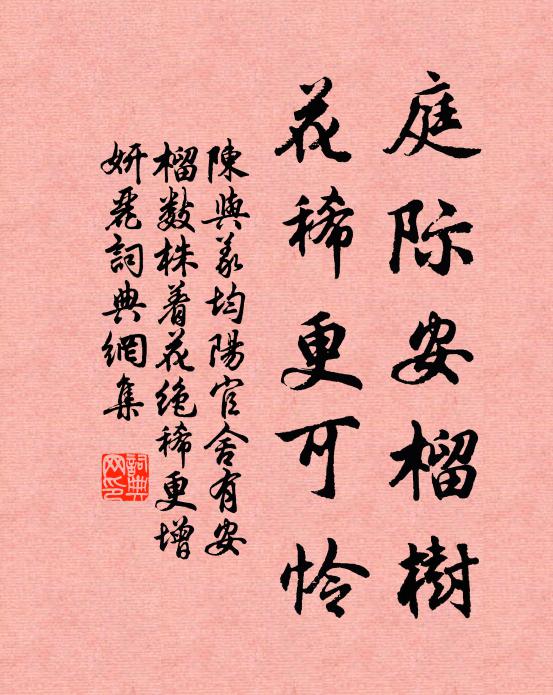 庭际安榴樹
花稀更可怜
陳與義均陽官舍有安
榴数株着花绝稀更增
妍麗詞典網集
詞典网印